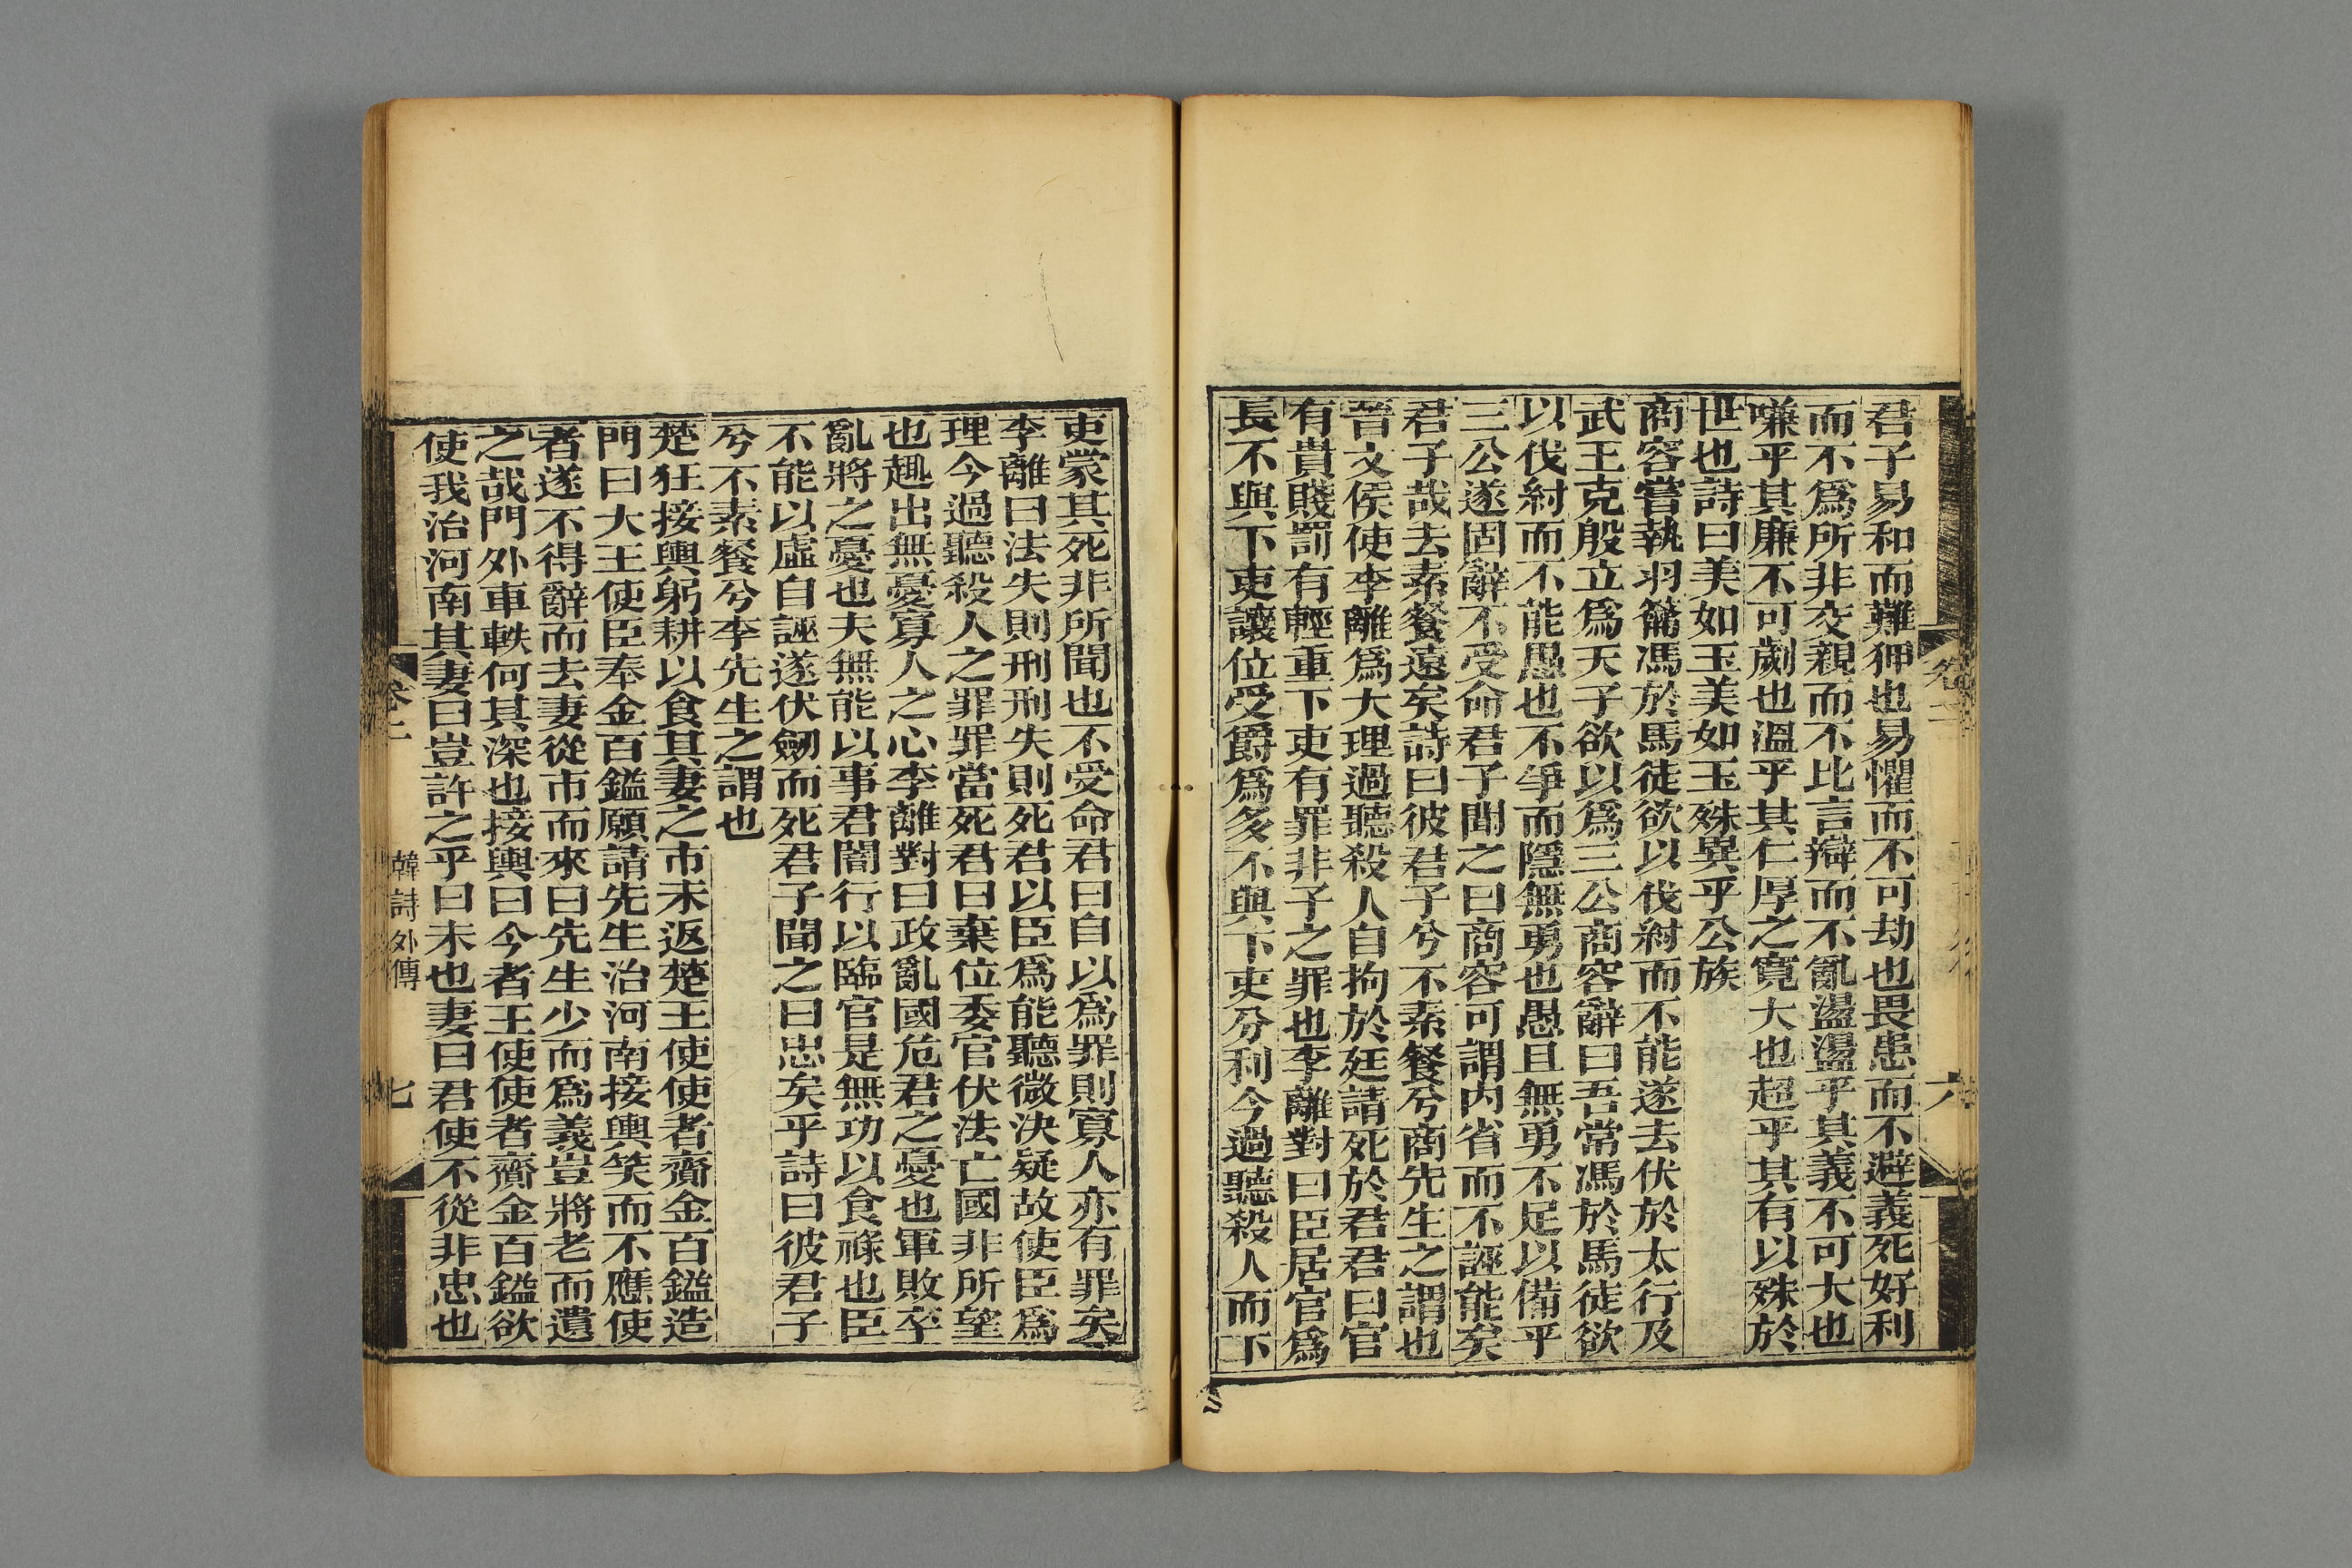 君子易和而難狎也易懼而不可劫也畏患而不避義死好利
而不爲所非交親而不比言辯而不亂盪盪乎其義不可大也
嗛乎其廉不可劌也溫乎其仁厚之寬大也超乎其有以殊於
世也詩曰美如玉美如玉殊異乎公族
商容嘗執羽籥馮於馬徒欲以伐紂而不能遂去伏於太行及
武王克殷立爲天子欲以爲三公商容辭曰吾常馮於馬徒欲
以伐紂而不能愚也不爭而隱無勇也愚且無勇不足以備乎
三公遂固辭不受命君子聞之曰商容可謂內省而不誣能矣
君子哉去素餐遠矣詩曰彼君子兮不素餐兮商先生之謂也
晉文侯使李離爲大理過聽殺人自拘於廷請死於君君曰官
有貴賤罰有輕重下吏有罪非子之罪也李離對曰臣居官爲
長不與下吏讓位受爵爲多不與下吏分利今過聽殺人而下
卷二
六
吏蒙其死非所聞也不受命君曰自以爲罪則寡人亦有罪矣
李離曰法失則刑刑失則死君以臣爲能聽微決疑故使臣爲
理今過聽殺人之罪罪當死君曰棄位委官伏法亡國非所望
也趣出無憂寡人之心李離對曰政亂國危君之憂也軍敗卒
亂將之憂也夫無能以事君闇行以臨官是無功以食祿也臣
不能以虛自誣遂伏劒而死君子聞之曰忠矣乎詩曰彼君子
兮不素餐兮李先生之謂也
楚狂接輿躬耕以食其妻之市未返楚王使使者齎金百鎰造
門曰大王使臣奉金百鎰願請先生治河南接輿笑而不應使
者遂不得辭而去妻從市而來曰先生少而爲義豈將老而遺
之哉門外車軼何其深也接輿曰今者王使使者齎金百鎰欲
使我治河南其妻曰豈許之乎曰未也妻曰君使不從非忠也
卷二
韓詩外傳
七